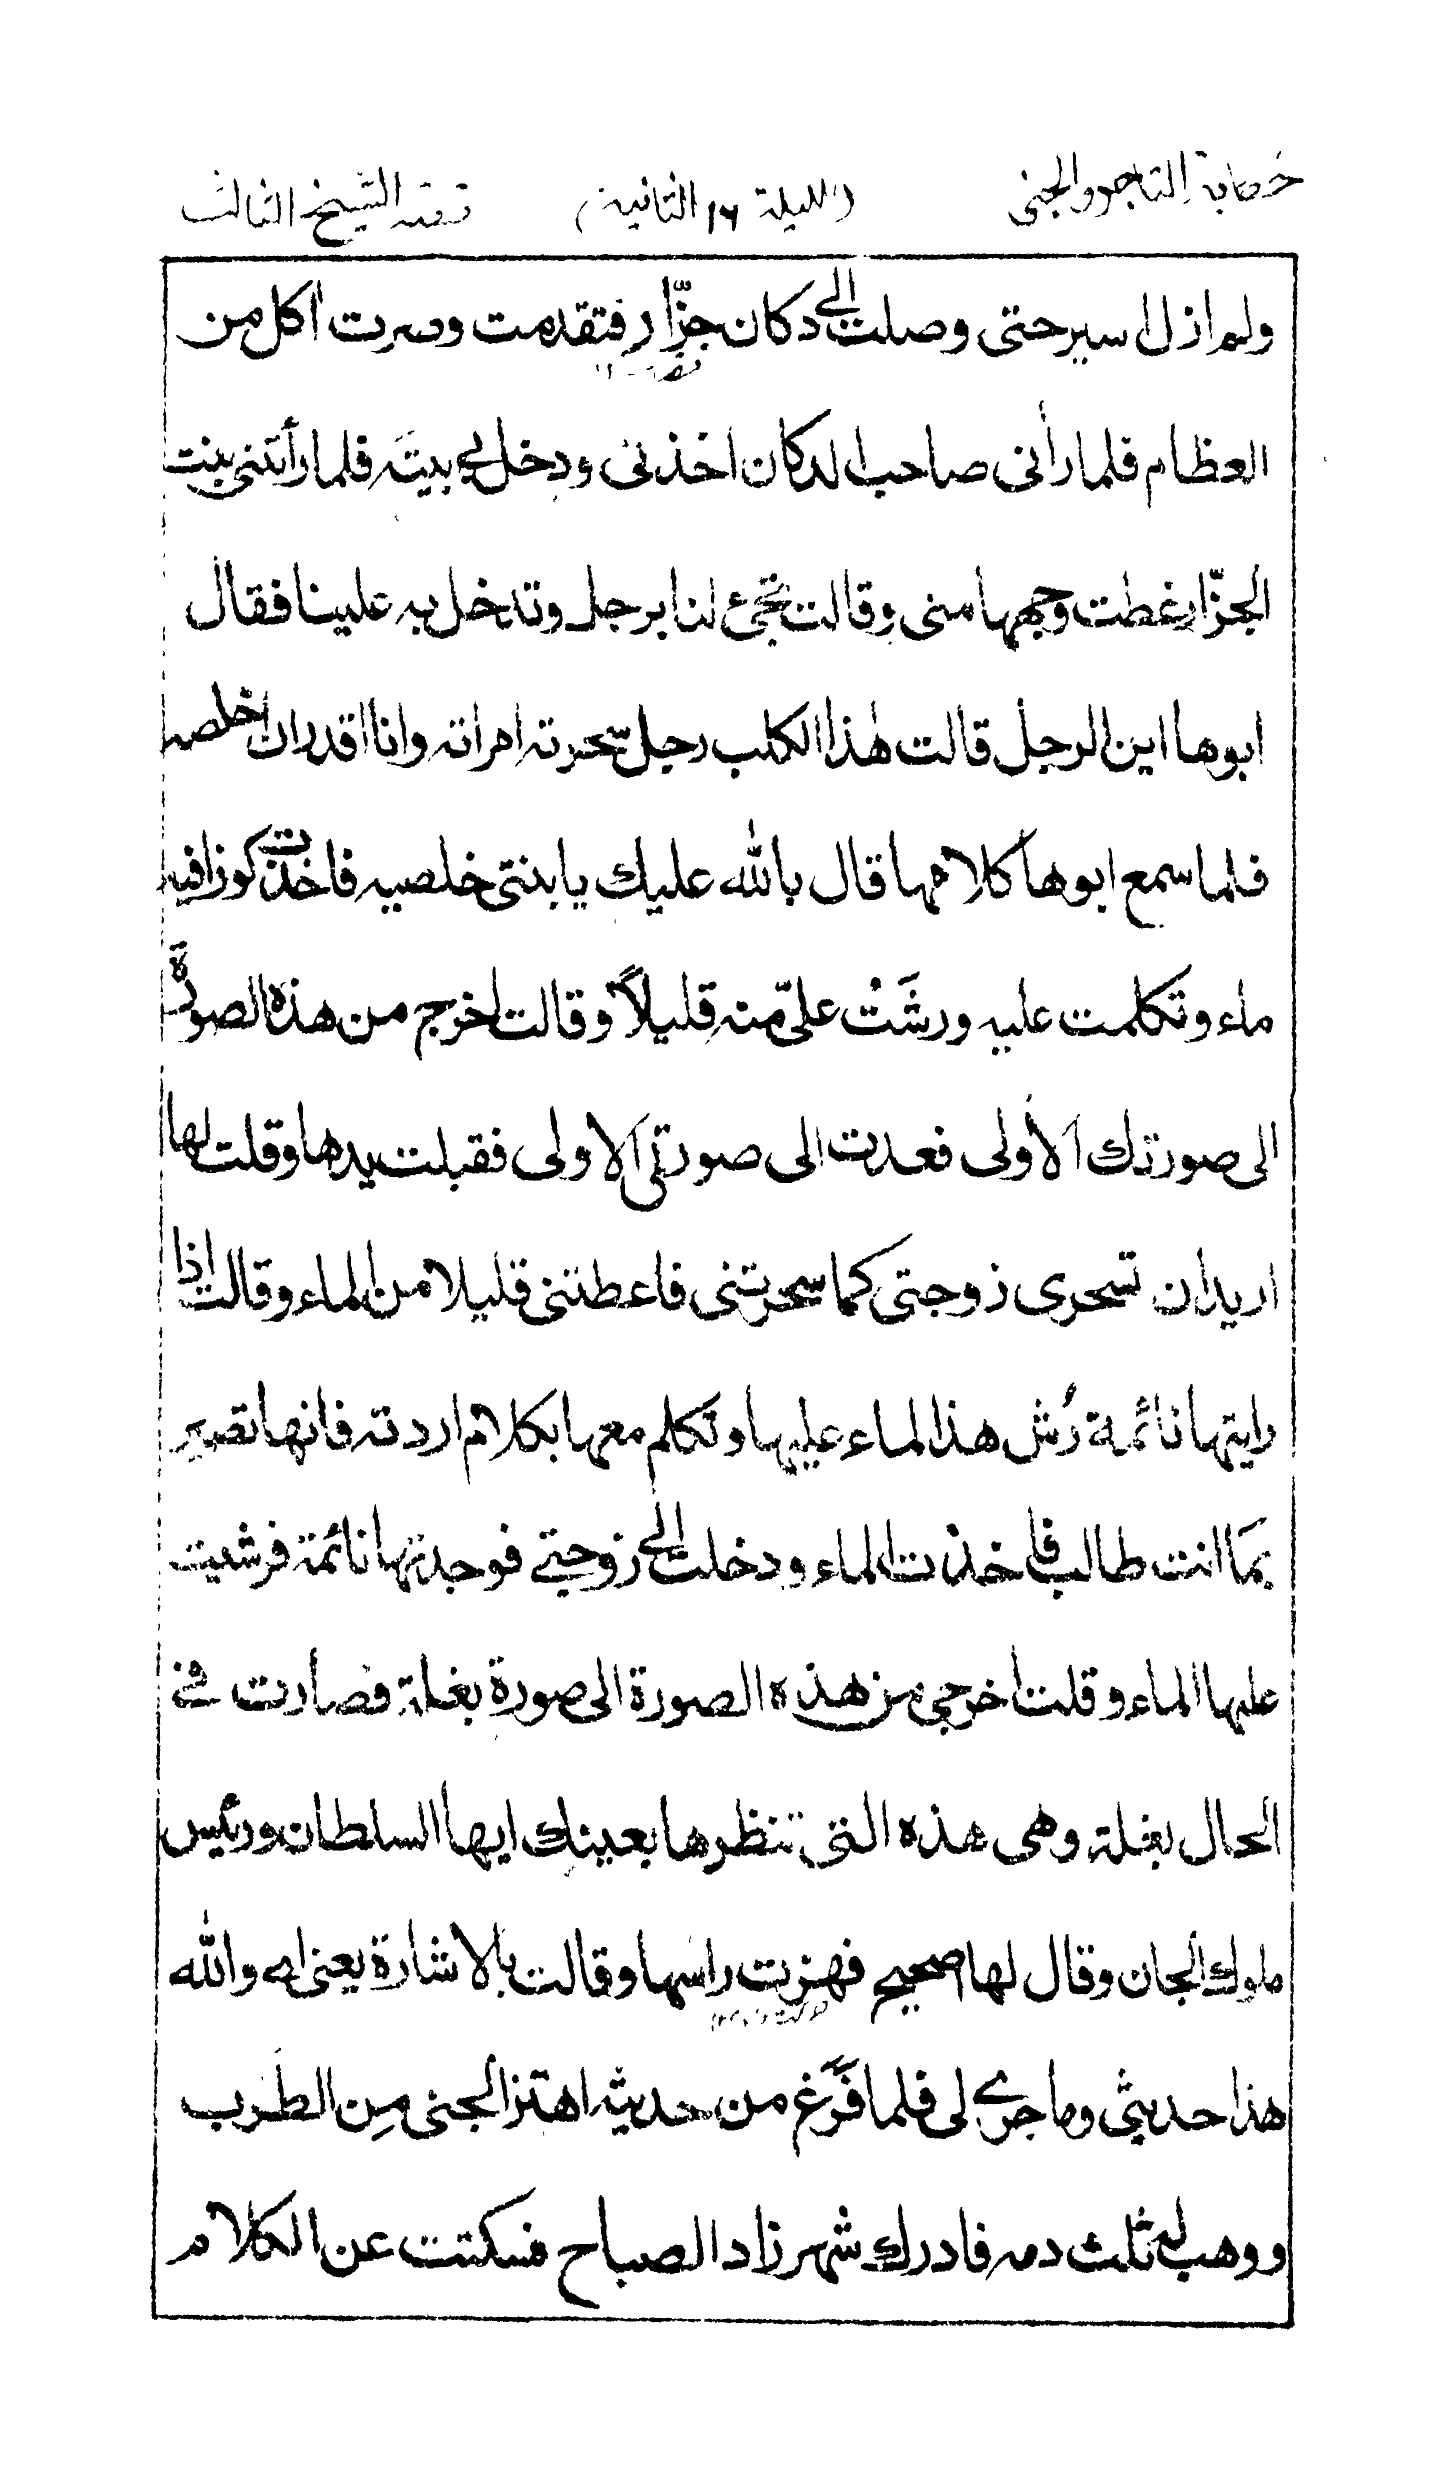 حكاية التاجر والجنى (الليلة ١٦ الثانية) قصة الشيخ الثالث
ولم ازل اسير حتى وصلت الى دكان جزّار فتقدمت وصرت اكل من
العظام فلما رأنى صاحب الدكان اخذنى ودخل بى بيته فلما رأتنى بنت
الجزّار غطت وجهها منى وقالت تجىء لنا برجل وتدخل به علينا فقال
ابوها اين الرجل قالت هذا الكلب رجل سحرته امراته وانا اقدر ان اخلصه
فلما سمع ابوها كلامها قال بالله عليك يا بنتى خلصيه فاخذت كوزا فيه
ماء وتكلمت عليه ورشت علىّ منه قليلاً وقالت اخرج من هذه الصورة
الى صورتك الاولى فعدت الى صورتى الاولى فقبلت يدها وقلت لها
اريد ان تسحرى زوجتى كما سحرتنى فاعطتنى قليلا من الماء وقالت اذا
رايتها نائمة رُش هذا الماء عليها وتكلم معها بكلام اردته فانها تصير
بمَا انت طالب فاخذت الماء ودخلت الى زوجتى فوجدتها نائمة فرشيت
عليها الماء وقلت اخرجى من هذه الصورة الى صورة بغلة فصارت فى
الحال بغلة وهى هذه التى تنظرها بعينك ايها السلطان ورئيس
ملوك الجان وقال لها اصحيح فهزت راسها وقالت بالاشارة يعنى اى والله
هذا حديثى وما جرى لى فلما فَرَغ من حديثه اهتز الجنى مِن الطرب
ووهب له ثلث دمه فادرك شهرزاد الصباح فسكتت عن الكلام